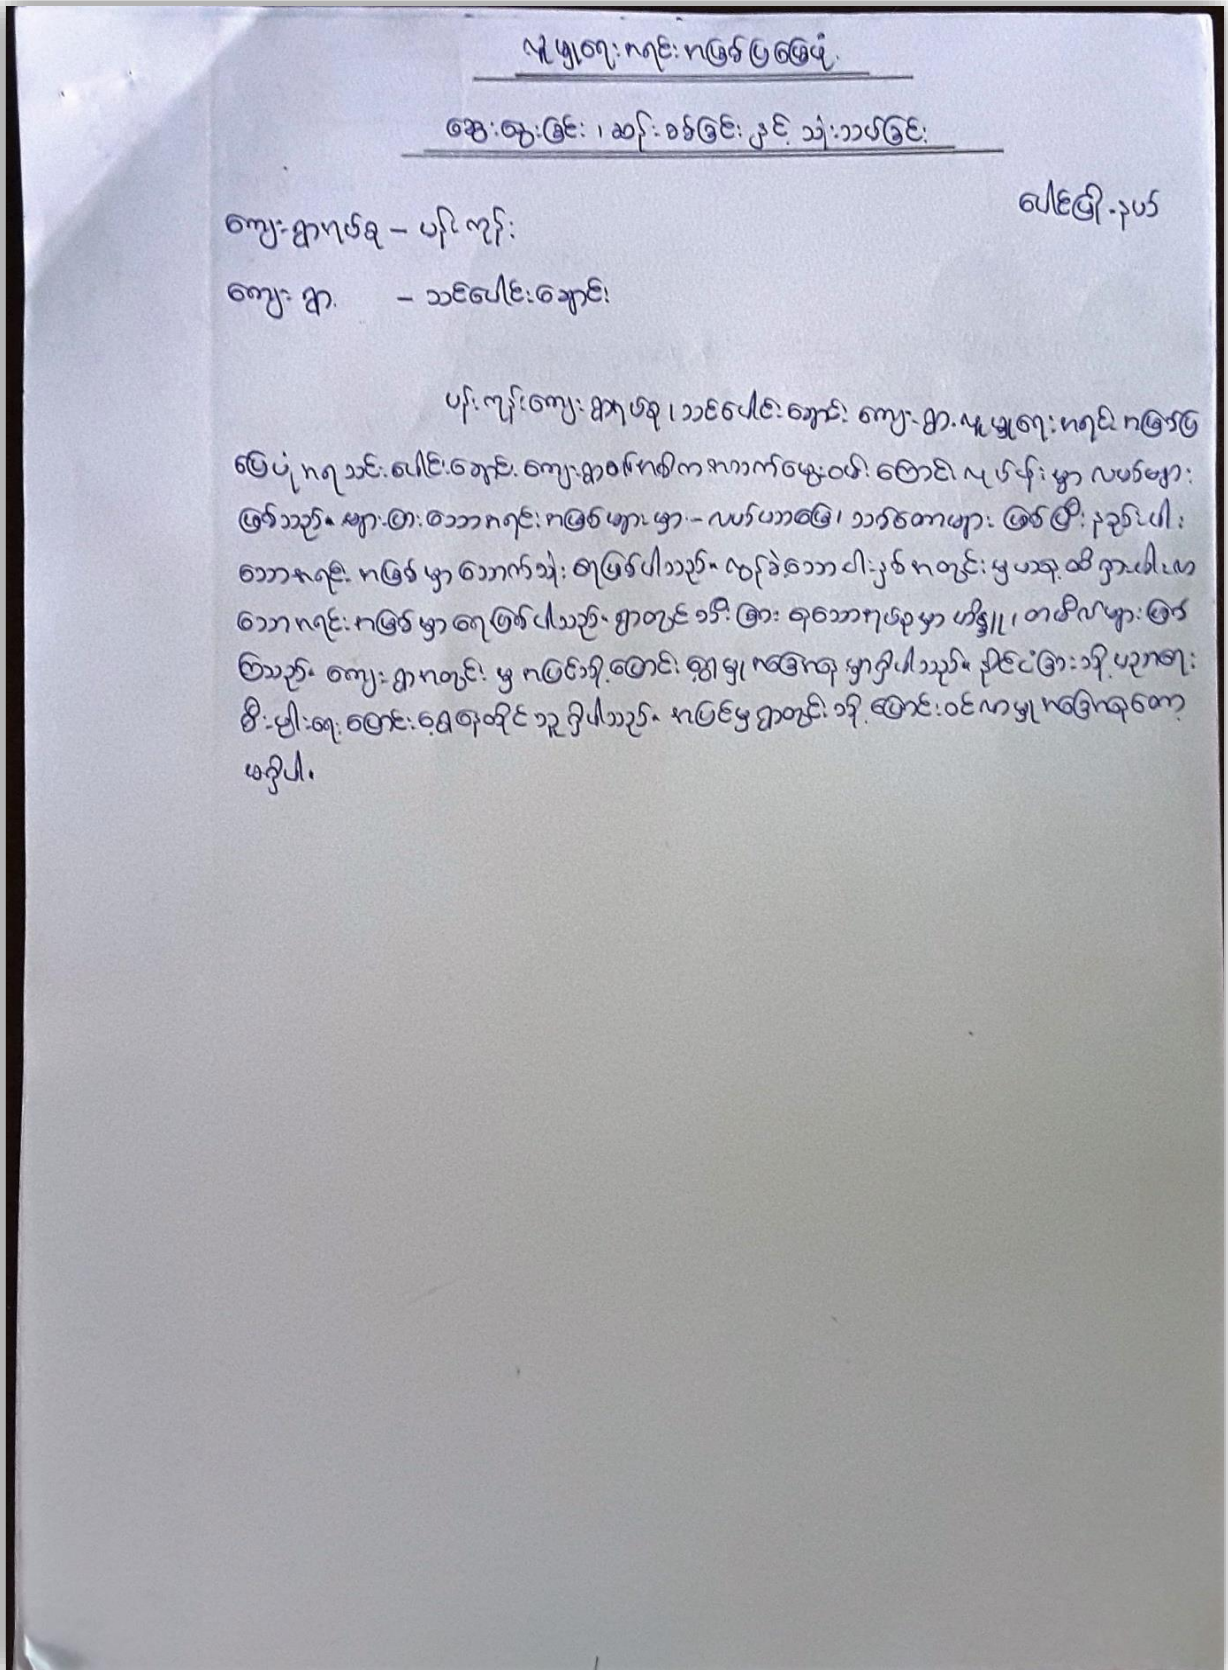 လူမှုရေးအရင်းအမြစ်ပြမြေပုံ
ဆွေးနွေးခြင်း၊ ဆန်းစစ်ခြင်းနှင့် သုံးသပ်ခြင်း
ပေါင်မြို့နယ်
ကျေးရွာအုပ်စု – ပန်းကုန်း
ကျေးရွာ – သင်ပေါင်းချောင်း
ပန်းကုန်းကျေးရွာအုပ်စု၊ သင်ပေါင်းချောင်း ကျေးရွာ လူမှုရေးအရင်းအမြစ်ပြ
မြေပုံအရ သင်ပေါင်းချောင်းကျေးရွာ၏အဓိကအသက်မွေးဝမ်းကြောင်းလုပ်ငန်းမှာ လယ်များ
ဖြစ်သည်။ များပြားသောအရင်းအမြစ်များမှာ – လယ်ယာမြေ၊ သစ်တောများ ဖြစ်ပြီး နည်းပါး
သောအရင်းအမြစ်မှာ သောက်သုံးရေဖြစ်ပါသည်။ လွန်ခဲ့သော ငါးနှစ်အတွင်းမှ ယခုထိ ရှားပါးလာ
သောအရင်းအမြစ်မှာ ရေဖြစ်ပါသည်။ ရွာတွင် သီးခြားနေသောအုပ်စုမှာ ဟိန္ဒူ၊ တမီလ်များဖြစ်
ကြသည်။ ကျေးရွာအတွင်းမှ အပြင်သို့ပြောင်းရွှေ့မှုအခြေအနေမှာရှိပါသည်။ နိုင်ငံခြားသို့ ပညာရေး
စီးပွါးရေး ပြောင်းရွှေ့နေထိုင်သူ ရှိပါသည်။ အပြင်မှရွာတွင်းသို့ ပြောင်းဝင်လာမှုအခြေအနေတော့
မရှိပါ။